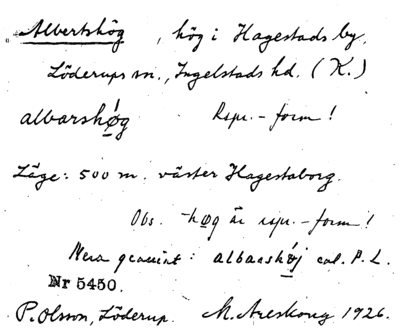 Albertshög, hög i Hagestads by,
Löderups sn., Ingelstads hd. (K.)
albarshǿg Rspr.-form!
Läge: 500 m. väster Hagestaborg.
Obs. -høg är rspr.-form!
Mera genuint: albarshǿj enl. P.L.
Nr 5450.
P. Olsson, Löderup. M. Areskoug 1926.